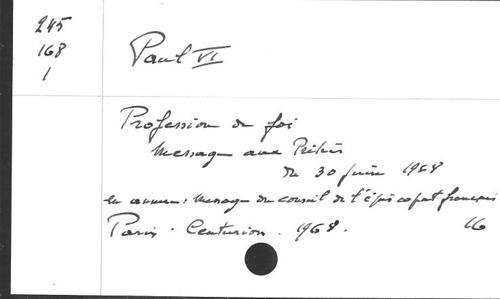 245
168
1
Paul VI
Profession de foi
Message aux Prêtres
du 30 Juin 1968
en annexe : Message du conseil de l'épiscopat français
Paris - Centurion . 1968 . 16